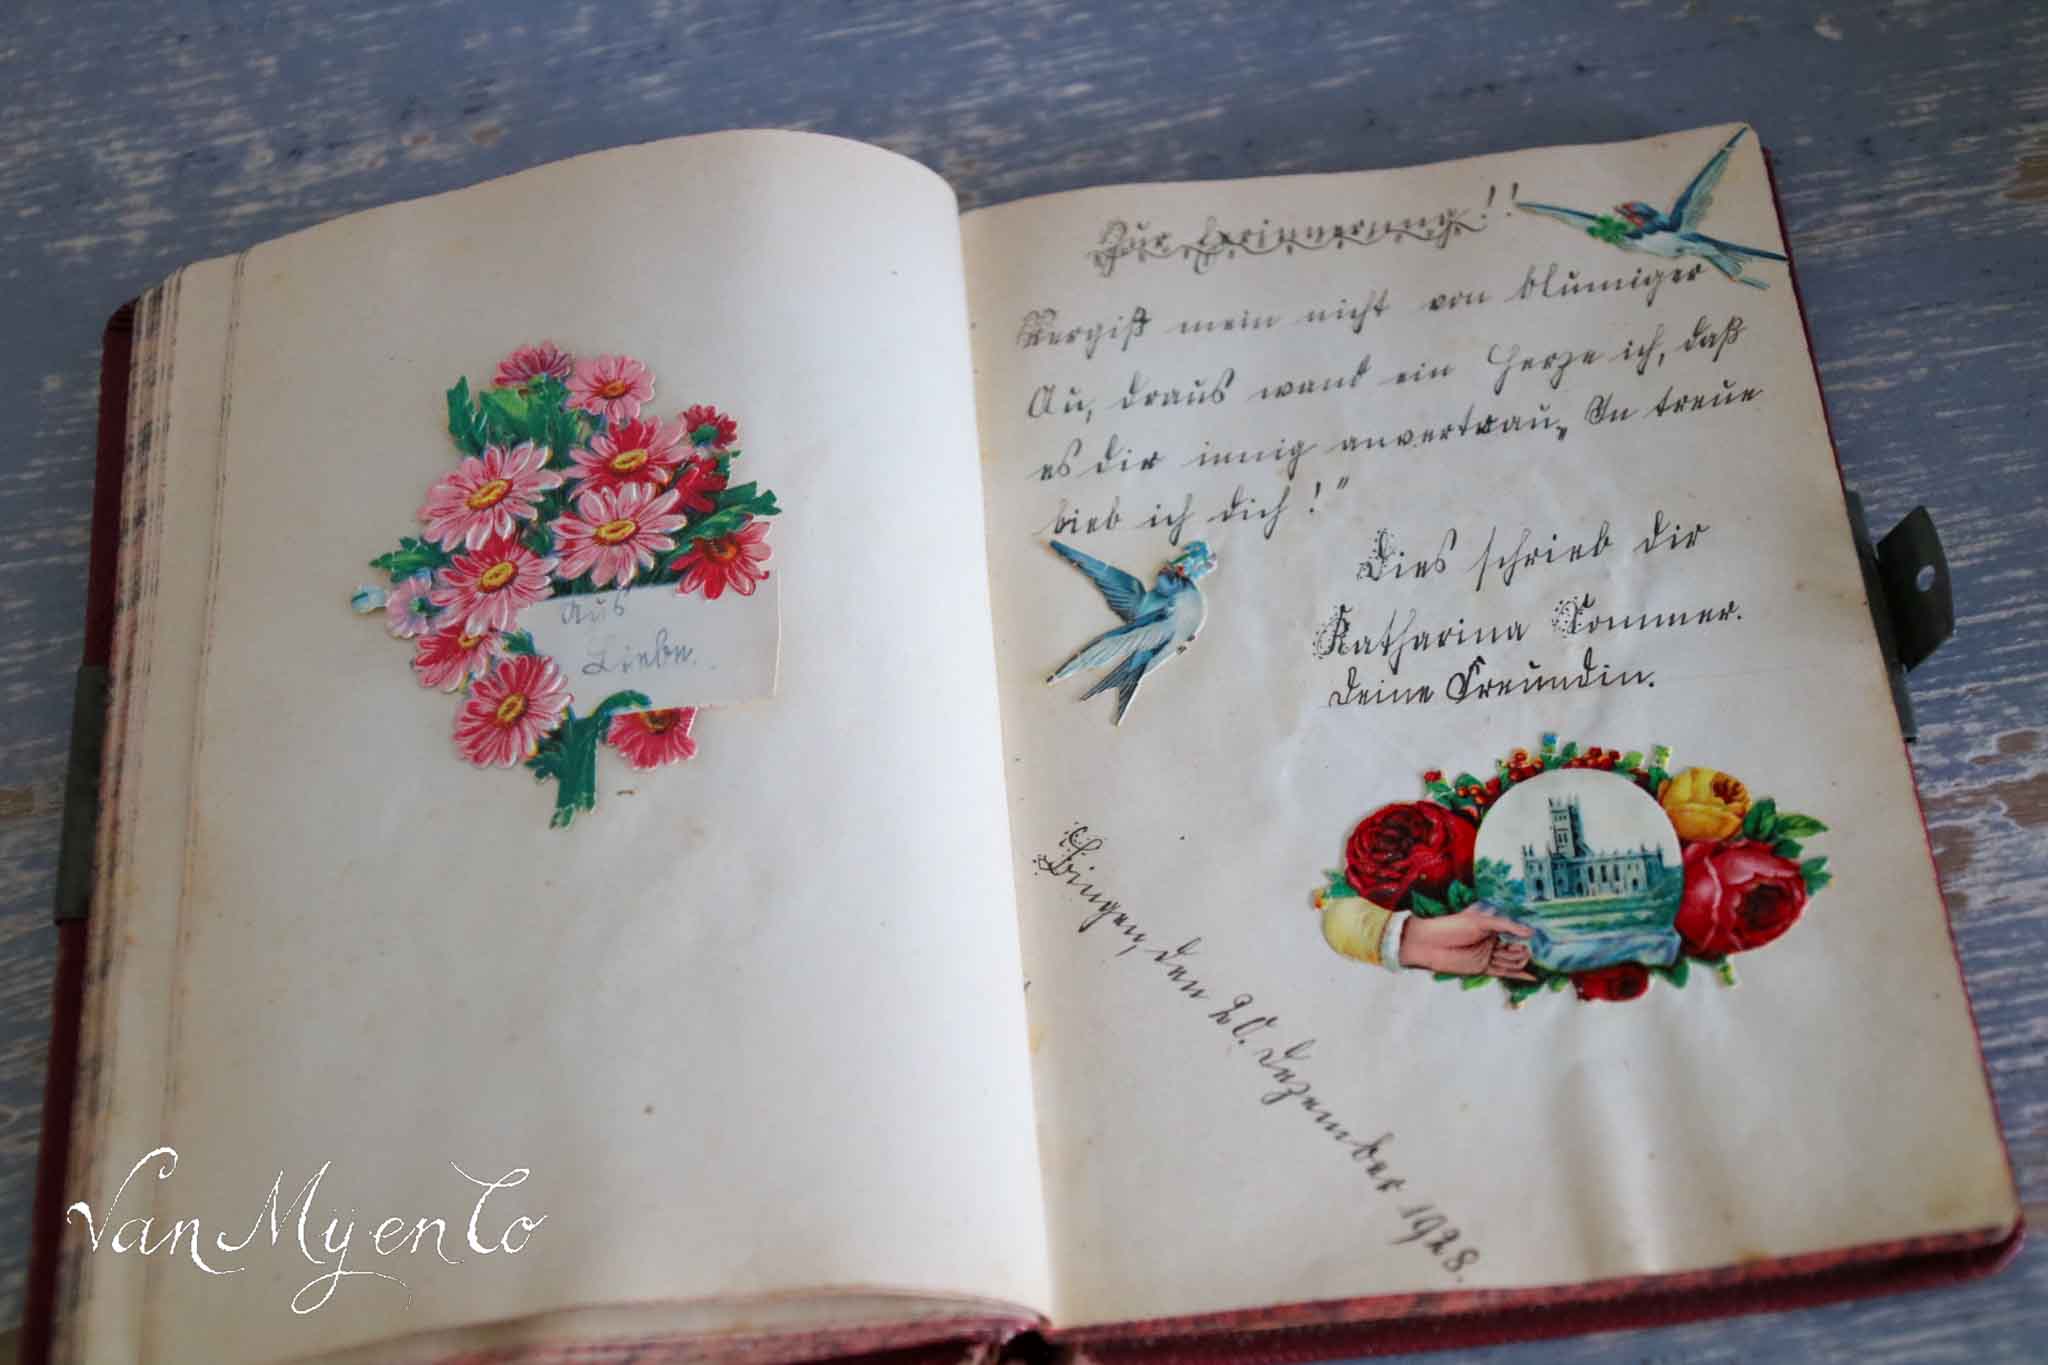 Aus
Liebe.
Zur Erinnerung!!
Vergiß mein nicht von blumiger
Au, draus wand ein Herze ich, daß
es dir innig anvertrau, „In treue
bieb ich dich!"
Dies schrieb dir
Katharina Sommer.
deine Freundin.
Bingen, den 20. Dezember 1928.
VanMyenCo